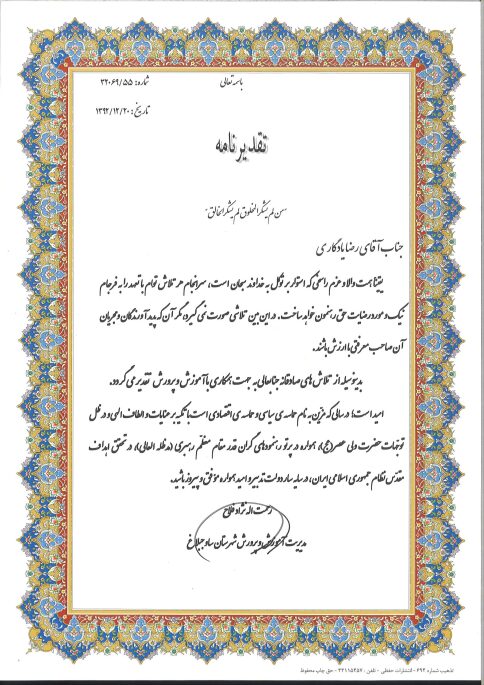 باسمه تعالی
شماره: ۳۲۰۶۹/۵۵
تاریخ: ۱۳۹۲/۱۲/۲۰
تقدیرنامه
"من لم یشکر المخلوق لم یشکر الخالق"
جناب آقای رضا یادگاری
یقینا همت والا و عزم راسخی که استوار بر توکل به خداوند سبحان است، سرانجام هر تلاش توام با تعهد را به فرجام
نیک و مورد رضایت حق رهنمون خواهد ساخت. در این بین تلاشی صورت نمی گیرد، مگر آن که پدید آورندگان و مجریان
آن صاحب معرفتی با ارزش باشند.
بدینوسیله از تلاش های صادقانه جنابعالی به جهت همکاری با آموزش و پرورش تقدیر می گردد.
امید است؛ در سالی که مزین به نام حماسه ی سیاسی و حماسه ی اقتصادی است با تکیه بر عنایات و الطاف الهی و در ظل
توجهات حضرت ولی عصر(عج)، همواره در پرتو رهنمودهای گران قدر مقام معظم رهبری (مدظله العالی) در تحقق اهداف
مقدس نظام جمهوری اسلامی ایران، در سایه سار دولت تدبیر و امید همواره موفق و پیروز باشید.
رحمت اله نژاد فلاح
مدیریت آموزش و پرورش شهرستان ساوجبلاغ
تذهیب شماره ۶۹۲ - انتشارات حفظی - تلفن : ۳۳۱۱۵۲۵۷ - حق چاپ محفوظ